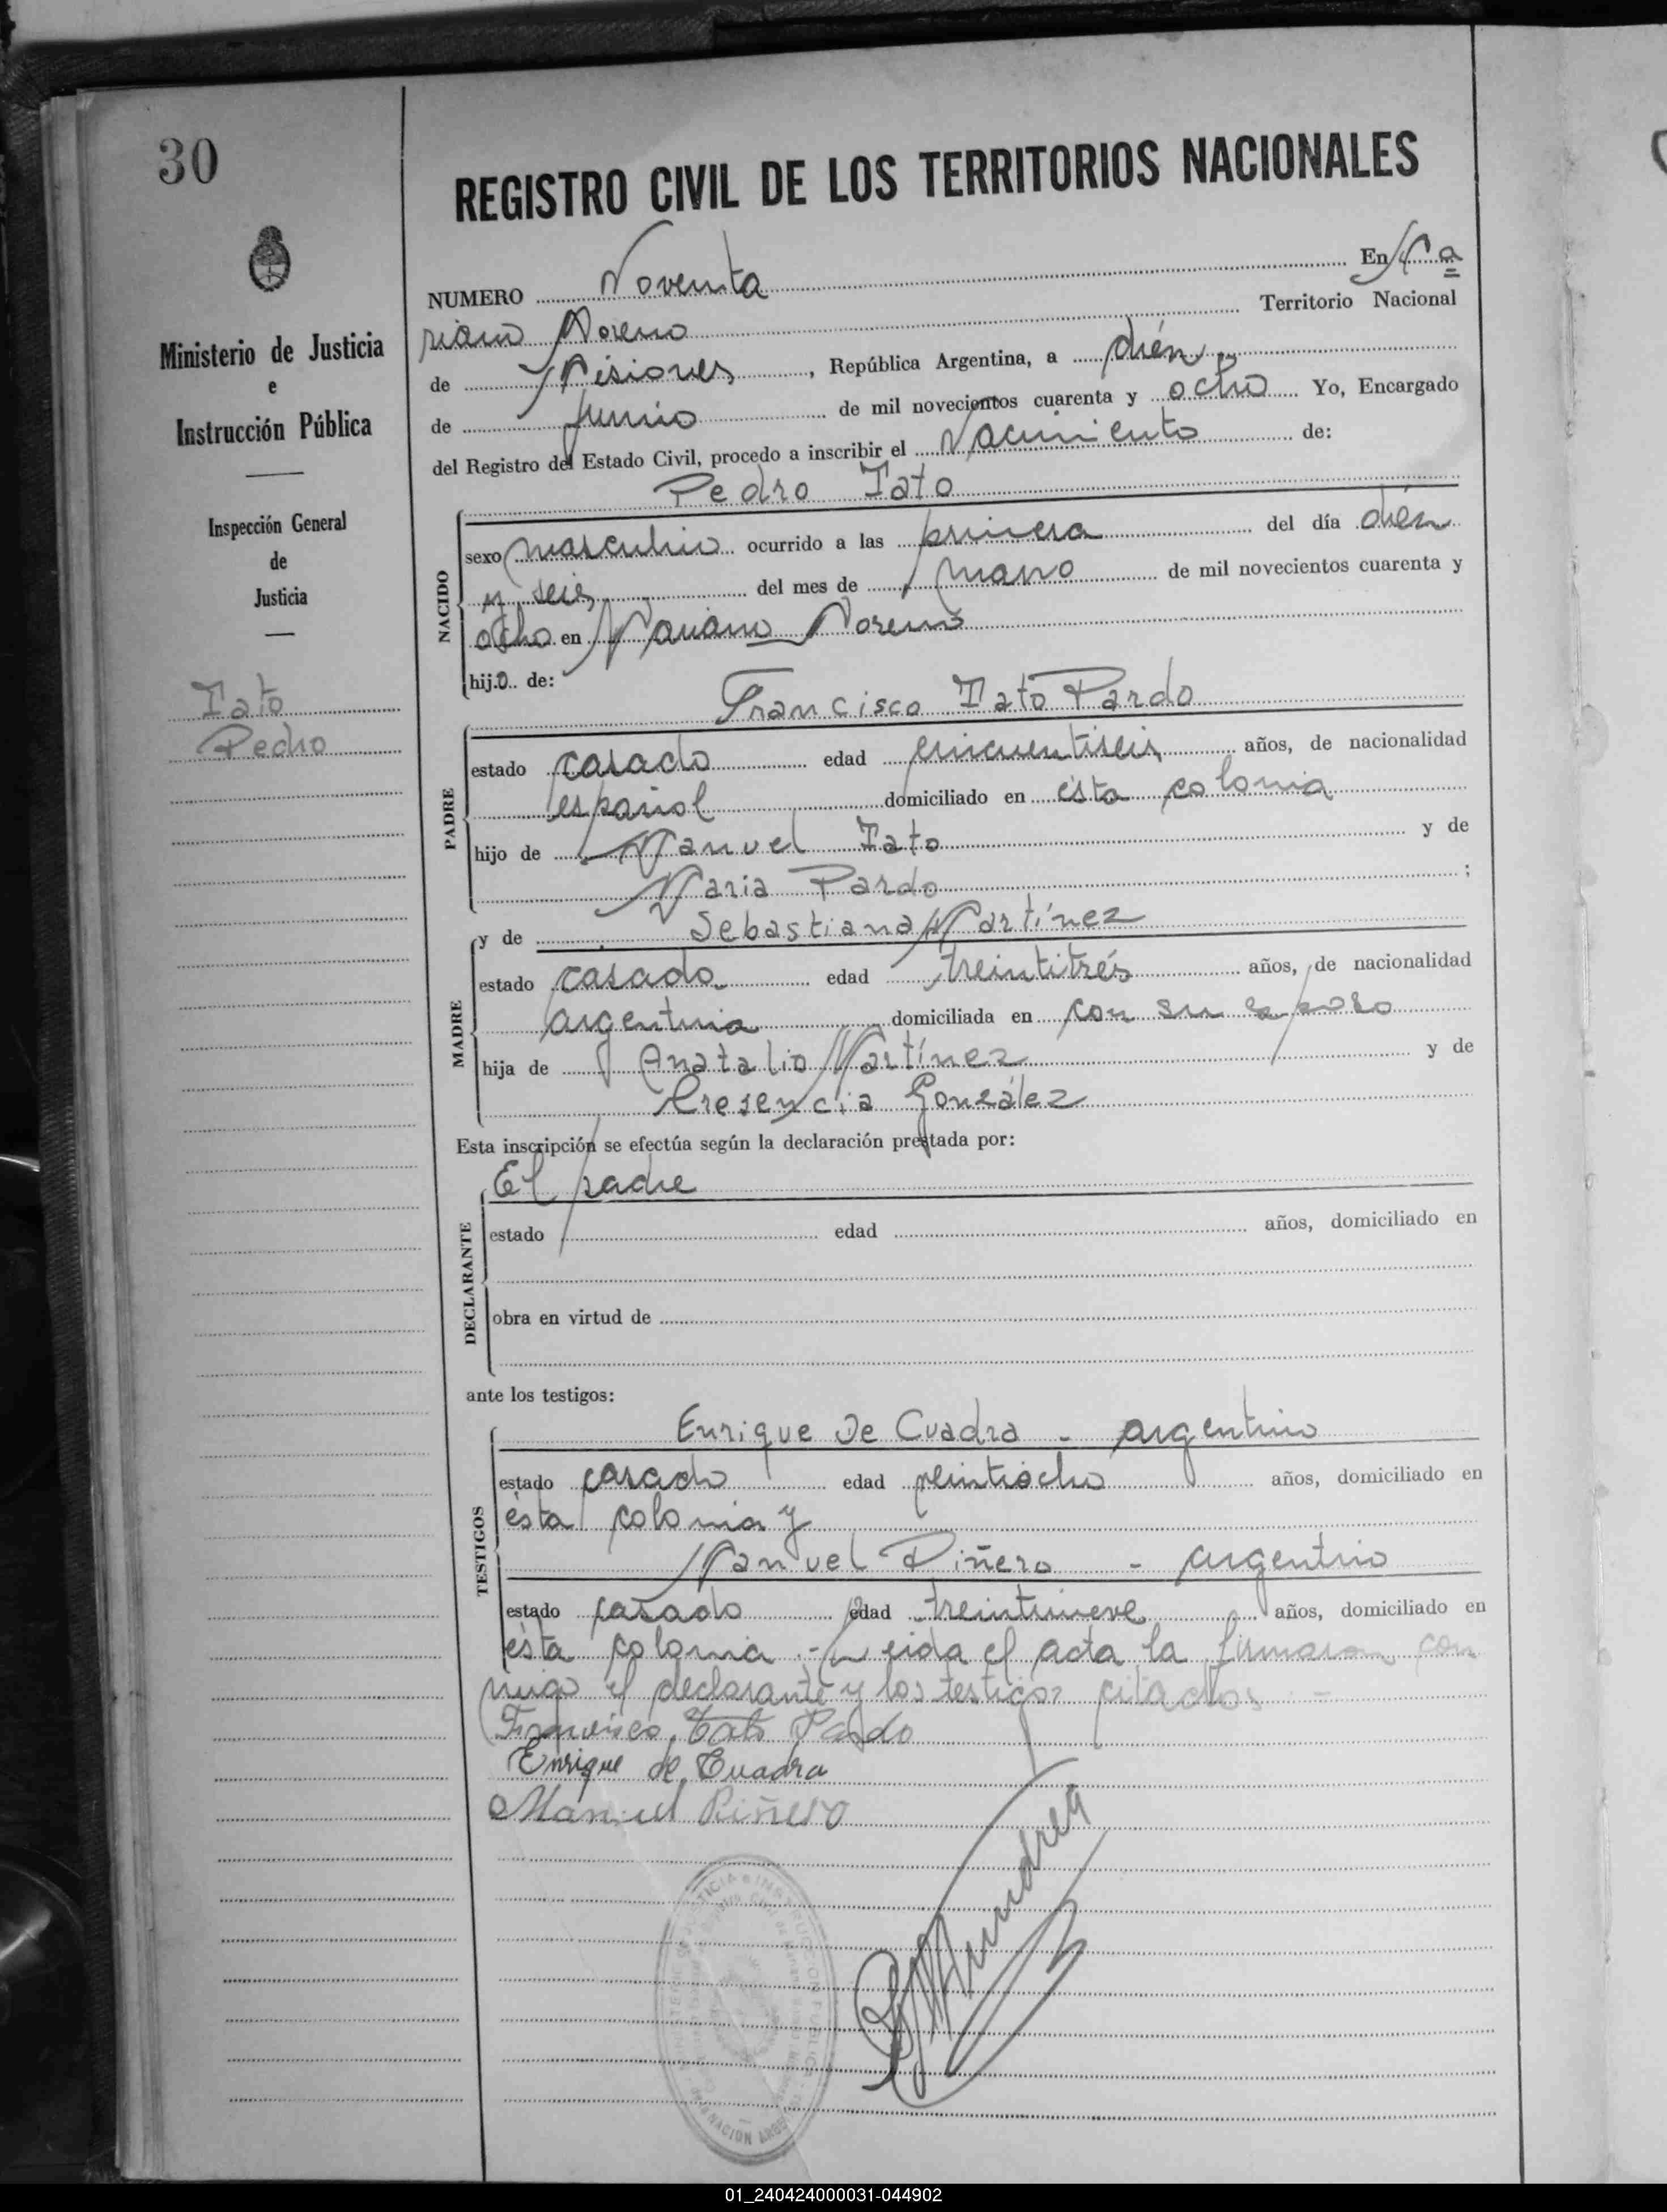 30
REGISTRO CIVIL DE LOS TERRITORIOS NACIONALES
NUMERO Noventa En Ma
riano Moreno Territorio Nacional
de Misiones, República Argentina, a dién
de Junio de mil novecientos cuarenta y ocho Yo, Encargado
del Registro del Estado Civil, procedo a inscribir el Nacimiento de:
Pedro Tato
Ministerio de Justicia
e
Instrucción Pública
Inspección General
de
Justicia
Tato
Pedro
NACIDO
sexo masculino ocurrido a las primera del día dién
y seis del mes de mayo de mil novecientos cuarenta y
ocho en Mariano Moreno
hijo de:
Francisco Tato Pardo
PADRE
estado casado edad cincuentiseis años, de nacionalidad
español domiciliado en ésta colonia
hijo de Manuel Tato y de
Maria Pardo ;
MADRE
y de Sebastiana Martínez
estado casado edad treintitrés años, de nacionalidad
argentina domiciliada en con su esposo
hija de Anatalio Martínez y de
Cresencia González
Esta inscripción se efectúa según la declaración prestada por:
El padre
DECLARANTE
estado edad años, domiciliado en
obra en virtud de
ante los testigos:
TESTIGOS
Enrique De Cuadra - argentino
estado casado edad veintiocho años, domiciliado en
ésta colonia y
Manuel Piñero - argentino
estado casado edad treintinueve años, domiciliado en
ésta colonia .- Leida el acta la firmaron con
migo el declarante y los testigos citados -
Francisco Tato Pardo
Enrique de Cuadra
Manuel Piñero
01_240424000031-044902